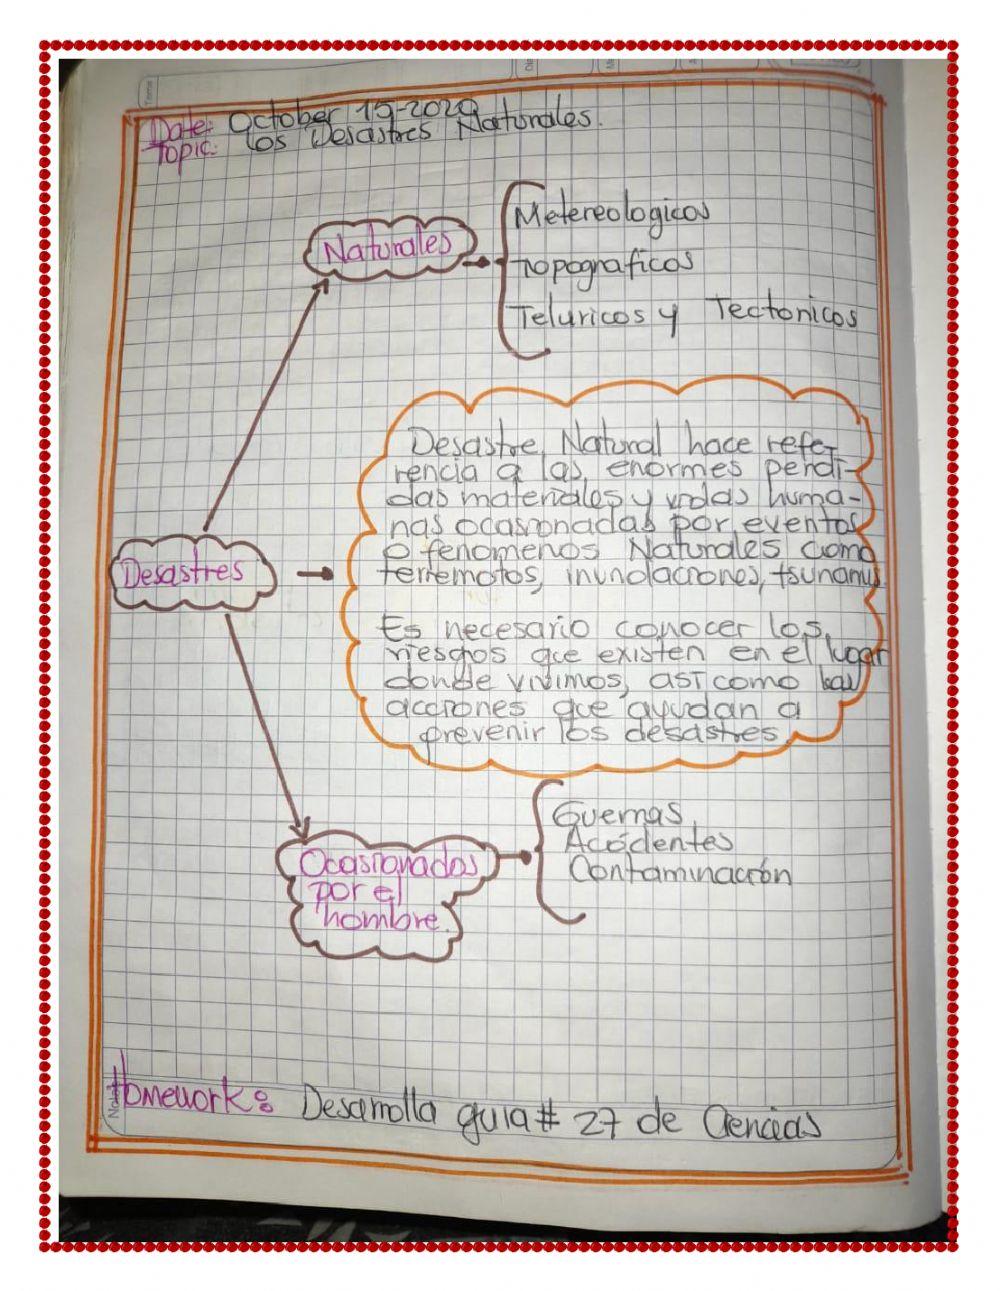 Date: October 15-2020
Topic: Los Desastres Naturales.
Naturales
Metereologicos
Topograficos
Teluricos y Tectonicos
Desastre Natural hace refe-
rencia a las enormes perdi-
das materiales y vidas huma-
nas ocasionadas por eventos
o fenomenos Naturales como
terremotos, inundaciones, tsunamis.
Desastres
Es necesario conocer los
riesgos que existen en el lugar
donde vivimos, así como las
acciones que ayudan a
prevenir los desastres.
Guerras
Accidentes
Contaminación
Ocasionados
por el
hombre.
Homework: Desarrolla guia # 27 de Ciencias